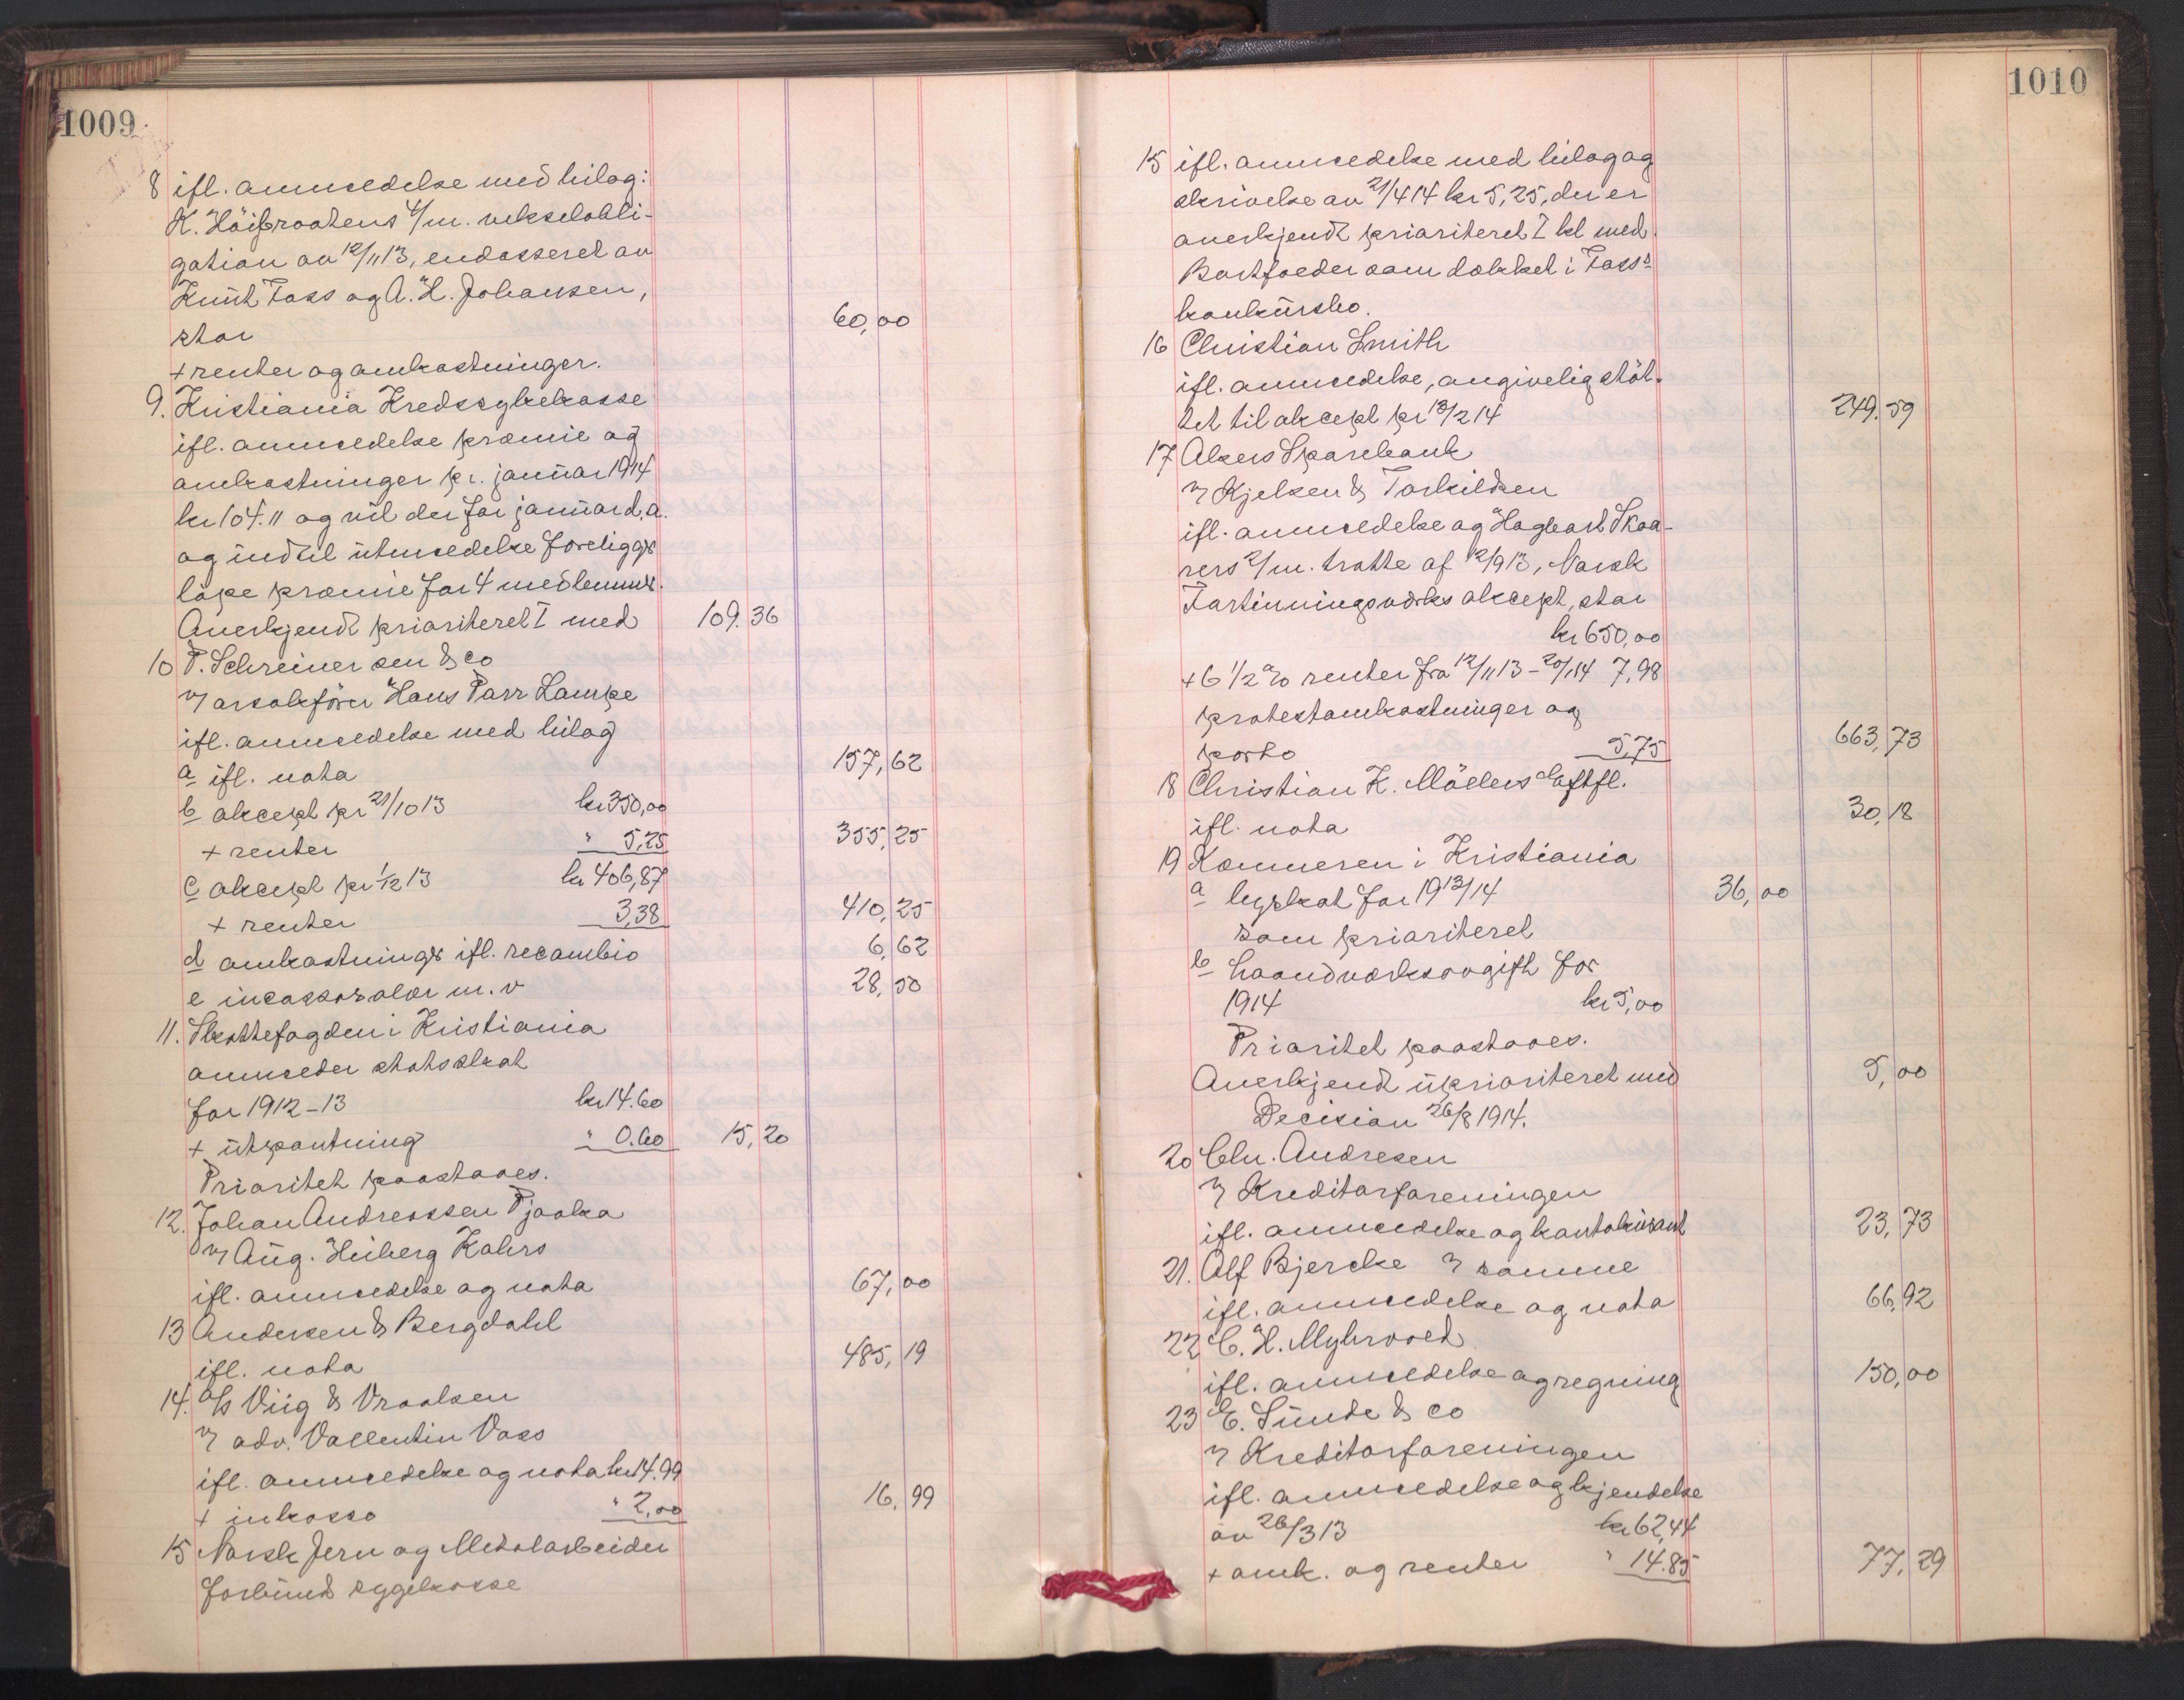 1009
8 ifl. anmeldelse med bilag:
K. Höibraatens 4/m. vekselobli-
gation av 12/11 13, endosseret av
Knut Foss og A. H. Johansen,
stor 60,00
+ renter og omkostninger.
9. Kristiania Kredssykekasse
ifl. anmeldelse præmie og
omkostninger pr. januar 1914
kr 104.11 og vil der for januar d. a.
og indtil utmeldelse foreligger
løpe præmie for 4 medlemmer.
Anerkjendt prioriteret I med 109.36
10 P. Schreiner sen & co
v/ orsakfører Hans Parr Lampe
ifl. anmeldelse med bilag
a ifl. nota 157,62
b akcept pr 21/10 13 kr 350,00
+ renter " 5,25 355,25
c akcept pr 1/12 13 kr 406,87
+ renter 3,38 410,25
d omkostninger ifl. recambio 6,62
e incassosalær m. v 28,50
11. Skattefogden i Kristiania
anmelder statsskat
for 1912-13 kr 14.60
+ utpantning " 0.60 15,20
Prioritet paastaaes.
12. Johan Andreassen Pjaaka
v/ Aug. Heiberg Kahrs
ifl. anmeldelse og nota 67,00
13 Andersen & Bergdahl
ifl. nota 485,19
14. A/s Viig & Vraalsen
v/ adv. Vallentin Voss
ifl. anmeldelse og nota kr 14.99
+ inkasso " 2,00 16,99
15 Norsk Jern og Metalarbeider
forbund sygekasse
1010
15 ifl. anmeldelse med bilag og
skrivelse av 21/4 14 kr 5,25, der er
anerkjendt prioriteret I kl med.
Bortfalder som dækket i Foss's
konkursbo.
16 Christian Smith
ifl. anmeldelse, angivelig støt-
tet til akcept pr 13/2 14 249.59
17 Akers Sparebank
v/ Kjelsen & Torkildsen
ifl. anmeldelse og Hagbart Skaa-
rers 2/m. tratte af 12/9 13, Norsk
Fortinningsværks akcept, stor
kr 650,00
+ 6 1/2 % renter fra 12/11 13 - 20/1 14 7,98
protestomkostninger og
porto 5,75 663,73
18 Christian K. Möllers Eftfl.
ifl. nota 30,18
19 Kæmneren i Kristiania
a byskat for 1913/14 36,00
som prioriteret
b haandverksavgift for
1914 kr 5,00
Prioritet paastaaes.
Anerkjendt uprioriteret med 5,00
Decision 26/8 1914.
20 Chr. Andresen
v/ Kreditorforeningen
ifl. anmeldelse og kontokurant 23,73
21. Alf Bjercke v/ samme
ifl. anmeldelse og nota 66,92
22 C. H. Myhrvold
ifl. anmeldelse og regning 150,00
23 E. Sunde & co
v/ Kreditorforeningen
ifl. anmeldelse og kjendelse
av 26/3 13 kr 62,44
+ omk. og renter " 14.85 77,29